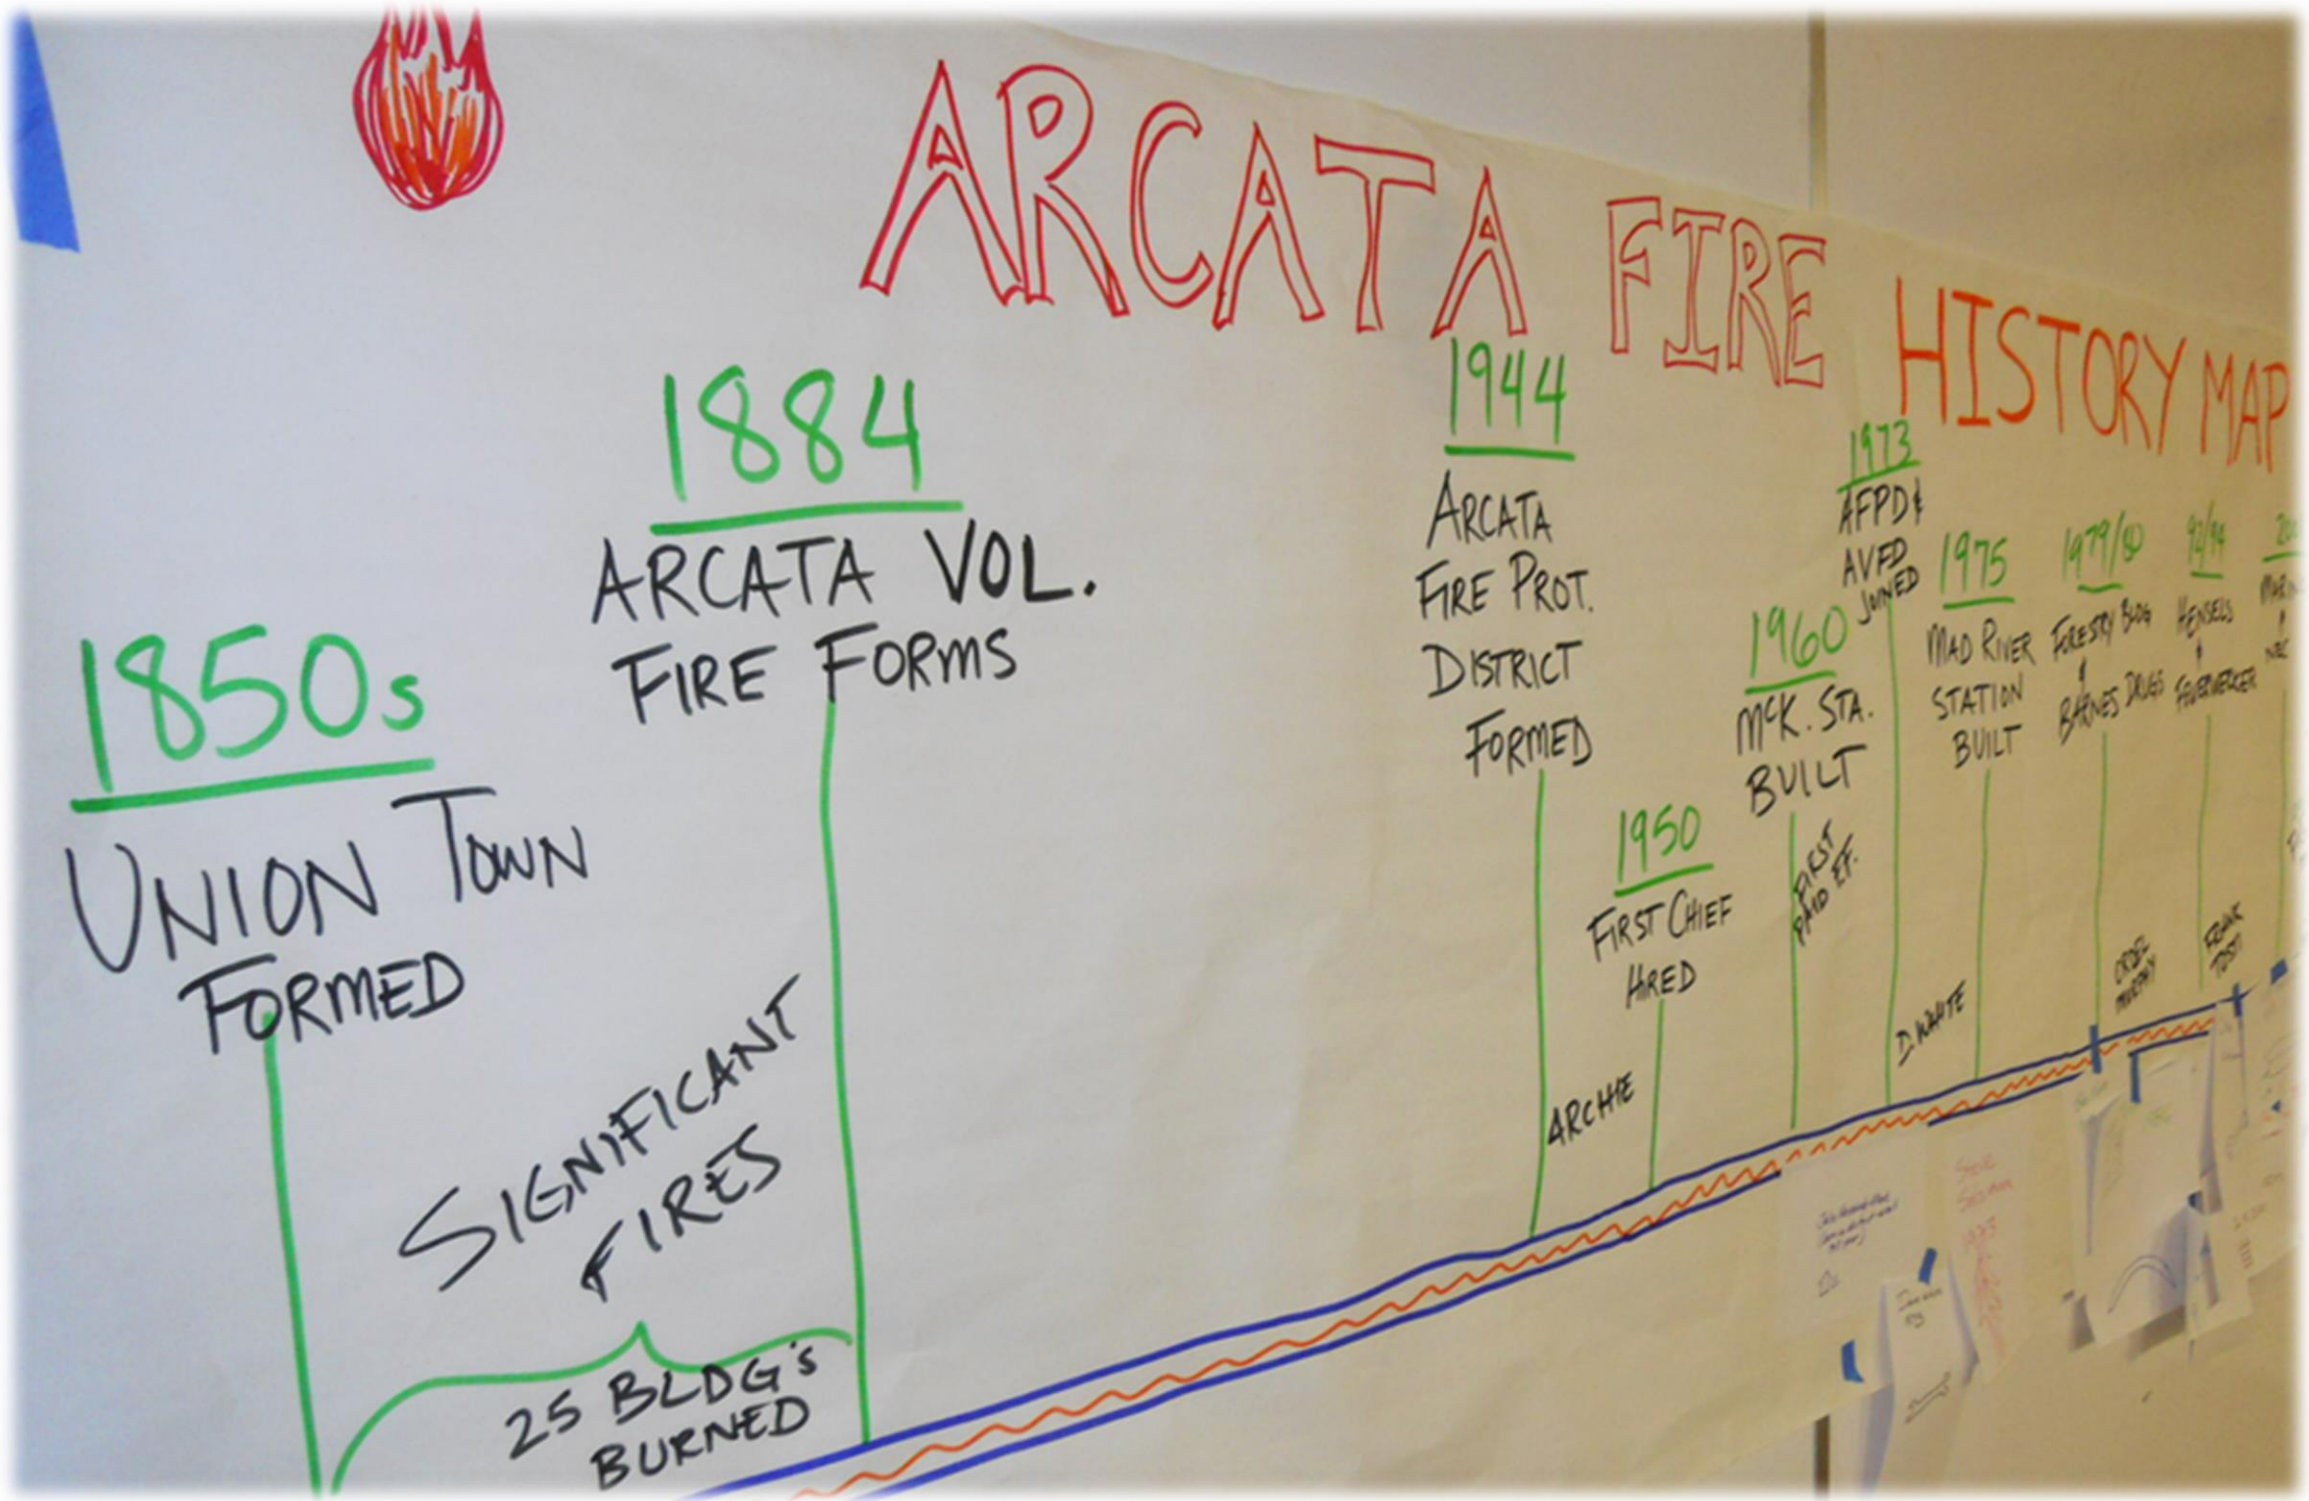 ARCATA FIRE HISTORY MAP
1850s
UNION TOWN
FORMED
SIGNIFICANT
FIRES
25 BLDG's
BURNED
1884
ARCATA VOL.
FIRE FORMS
1944
ARCATA
FIRE PROT.
DISTRICT
FORMED
ARCHIE
1950
FIRST CHIEF
HIRED
1960
McK. STA.
BUILT
FIRST
PAID
1973
AFPD &
AVFD
JOINED
D. WHITE
1975
MAD RIVER
STATION
BUILT
1979/80
FORESTRY BLDG
&
BARNES DRUGS
MURPHY
HENSELS
&
FEUERWERKER
FRANK
TOSTI